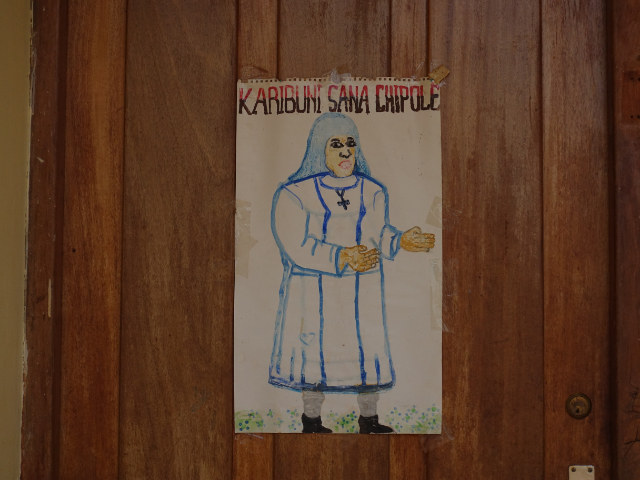 KARIBUNI SANA CHIPOLE